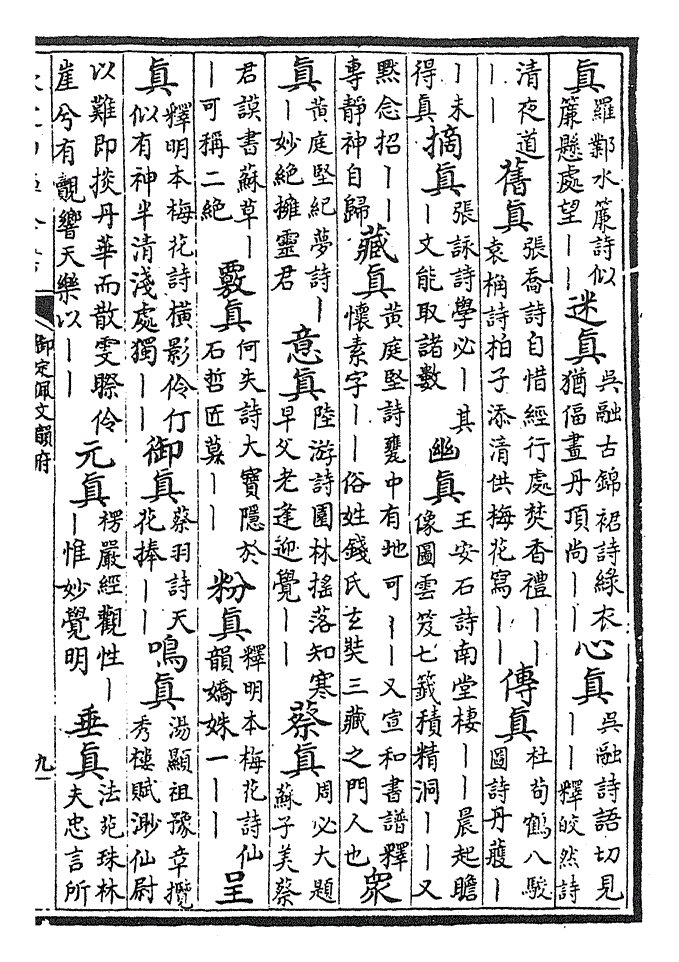 眞羅鄴水簾詩似簾懸處望丨丨迷眞吳融古錦裾詩綠衣猶偪畫丹頂尚丨丨心眞吳融詩語切見丨丨釋皎然詩
清夜道丨丨舊眞張喬詩自惜經行處焚香禮丨丨袁桷詩拍子添清供梅花寫丨丨傳眞杜荀鶴八駿圖詩丹雘丨
丨未得眞摘眞張詠詩學必丨其丨文能取諸數幽眞王安石詩南堂棲丨丨晨起瞻像圖雲笈七籤積精洞丨丨又
黙念招丨丨專靜神自歸藏眞黃庭堅詩甕中有地可丨丨又宣和書譜釋懷素字丨丨俗姓錢氏𤣥奘三藏之門人也衆
眞黃庭堅紀夢詩丨丨妙絶擁靈君意眞陸游詩園林搖落知寒早父老逢迎覺丨丨蔡眞周必大題蘇子美蔡
君謨書蘇草丨丨可稱二絶覈眞何失詩大寶隱於石哲匠莫丨丨粉眞釋明本梅花詩仙韻嬌姝一丨丨呈
眞釋明本梅花詩橫影伶仃似有神半清淺處獨丨丨御眞蔡羽詩天花捧丨丨鳴眞湯顯祖豫章攬秀樓賦渺仙尉
以難即掞丹華而散雯睽伶崖兮有覿響天樂以丨丨元眞楞嚴經觀性丨丨惟妙覺明垂眞法苑珠林夫忠言所
御定佩文韻府
九